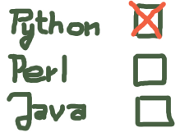 Python
Perl
Java